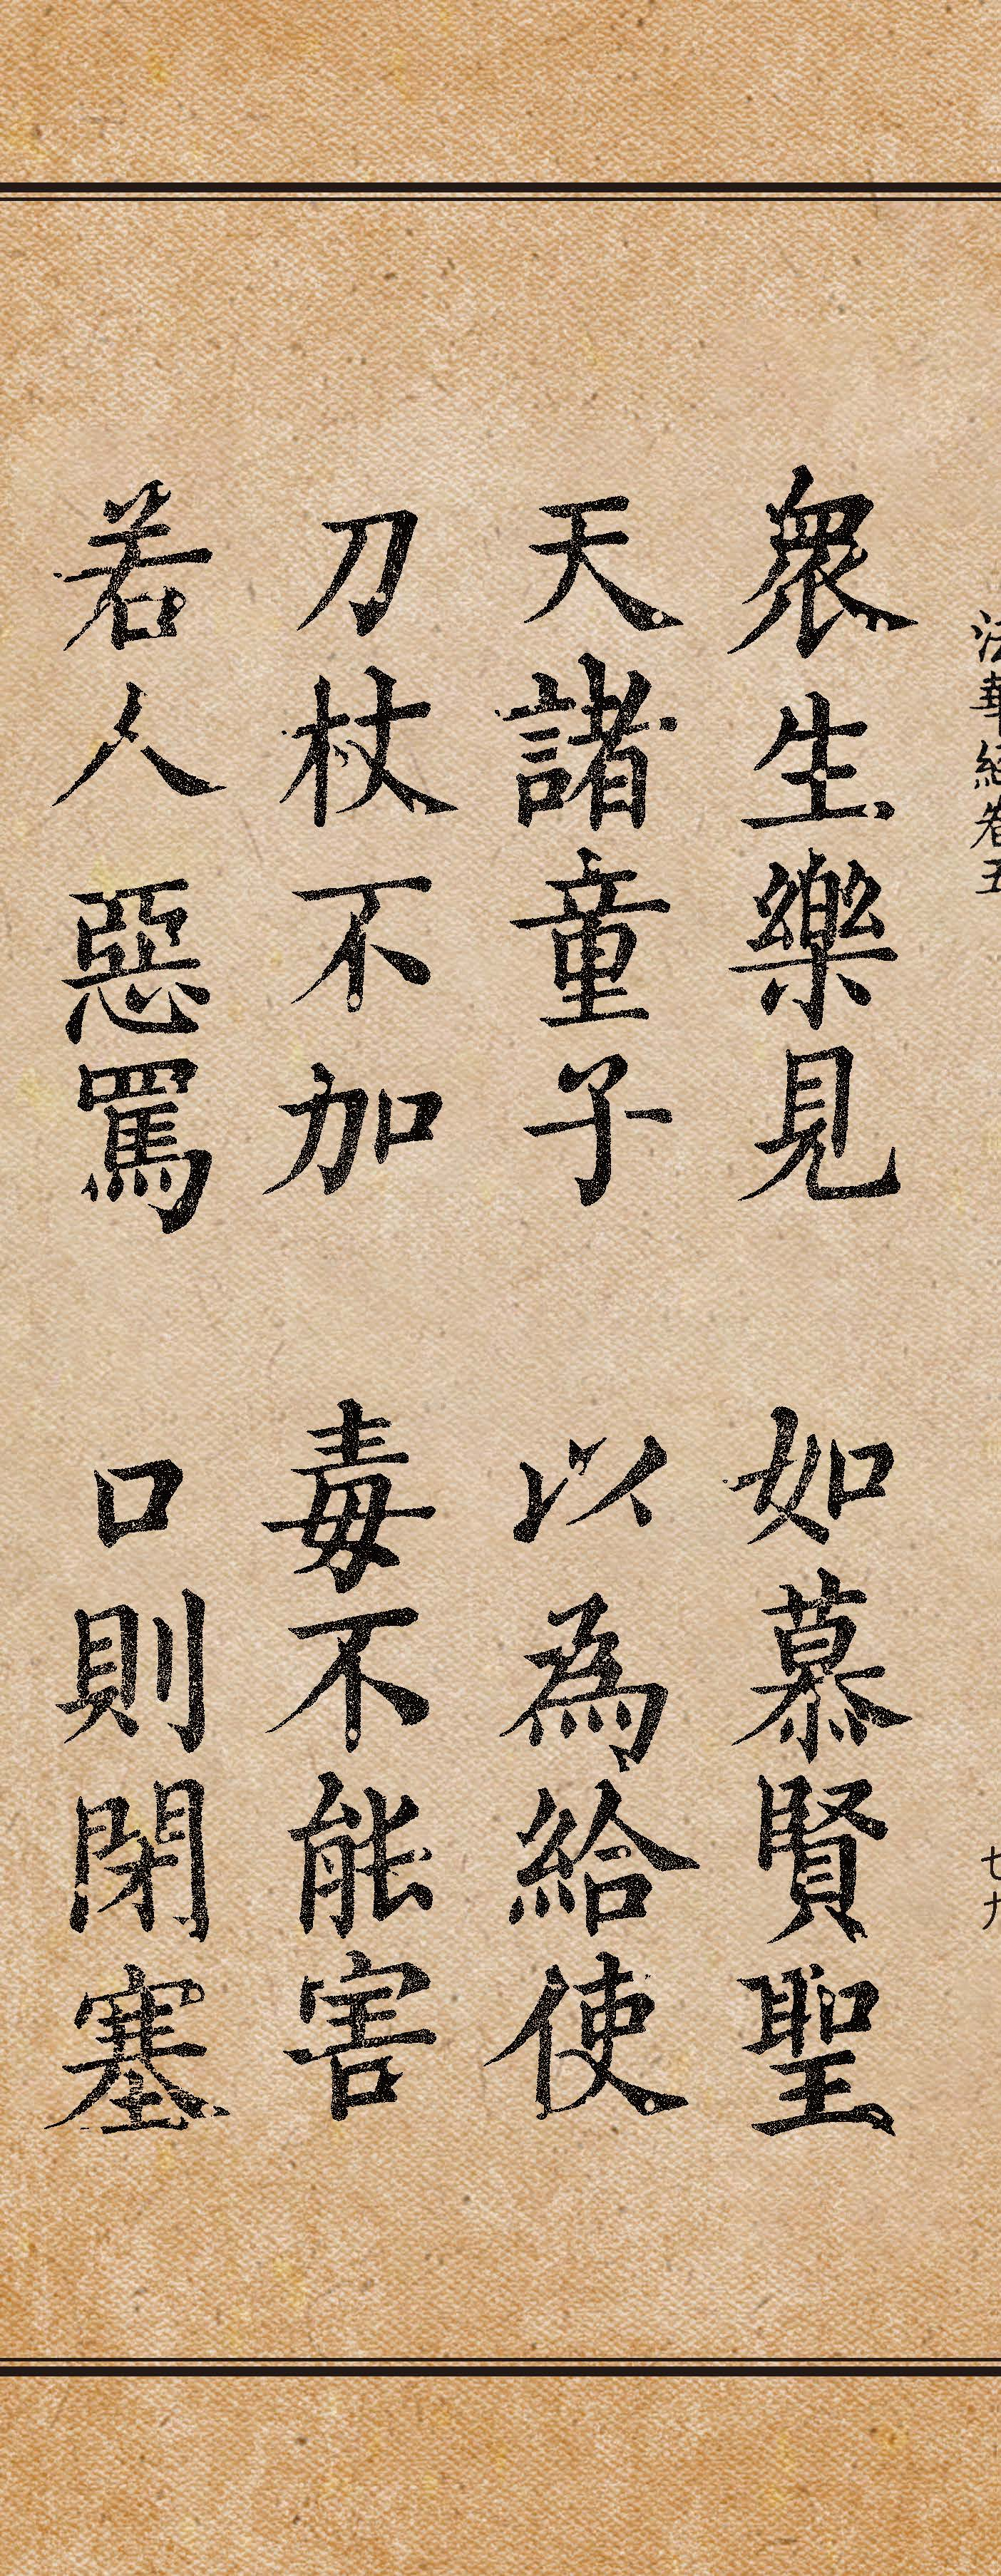 法華經卷五 七九
眾生樂見 如慕賢聖
天諸童子 以為給使
刀杖不加 毒不能害
若人惡罵 口則閉塞